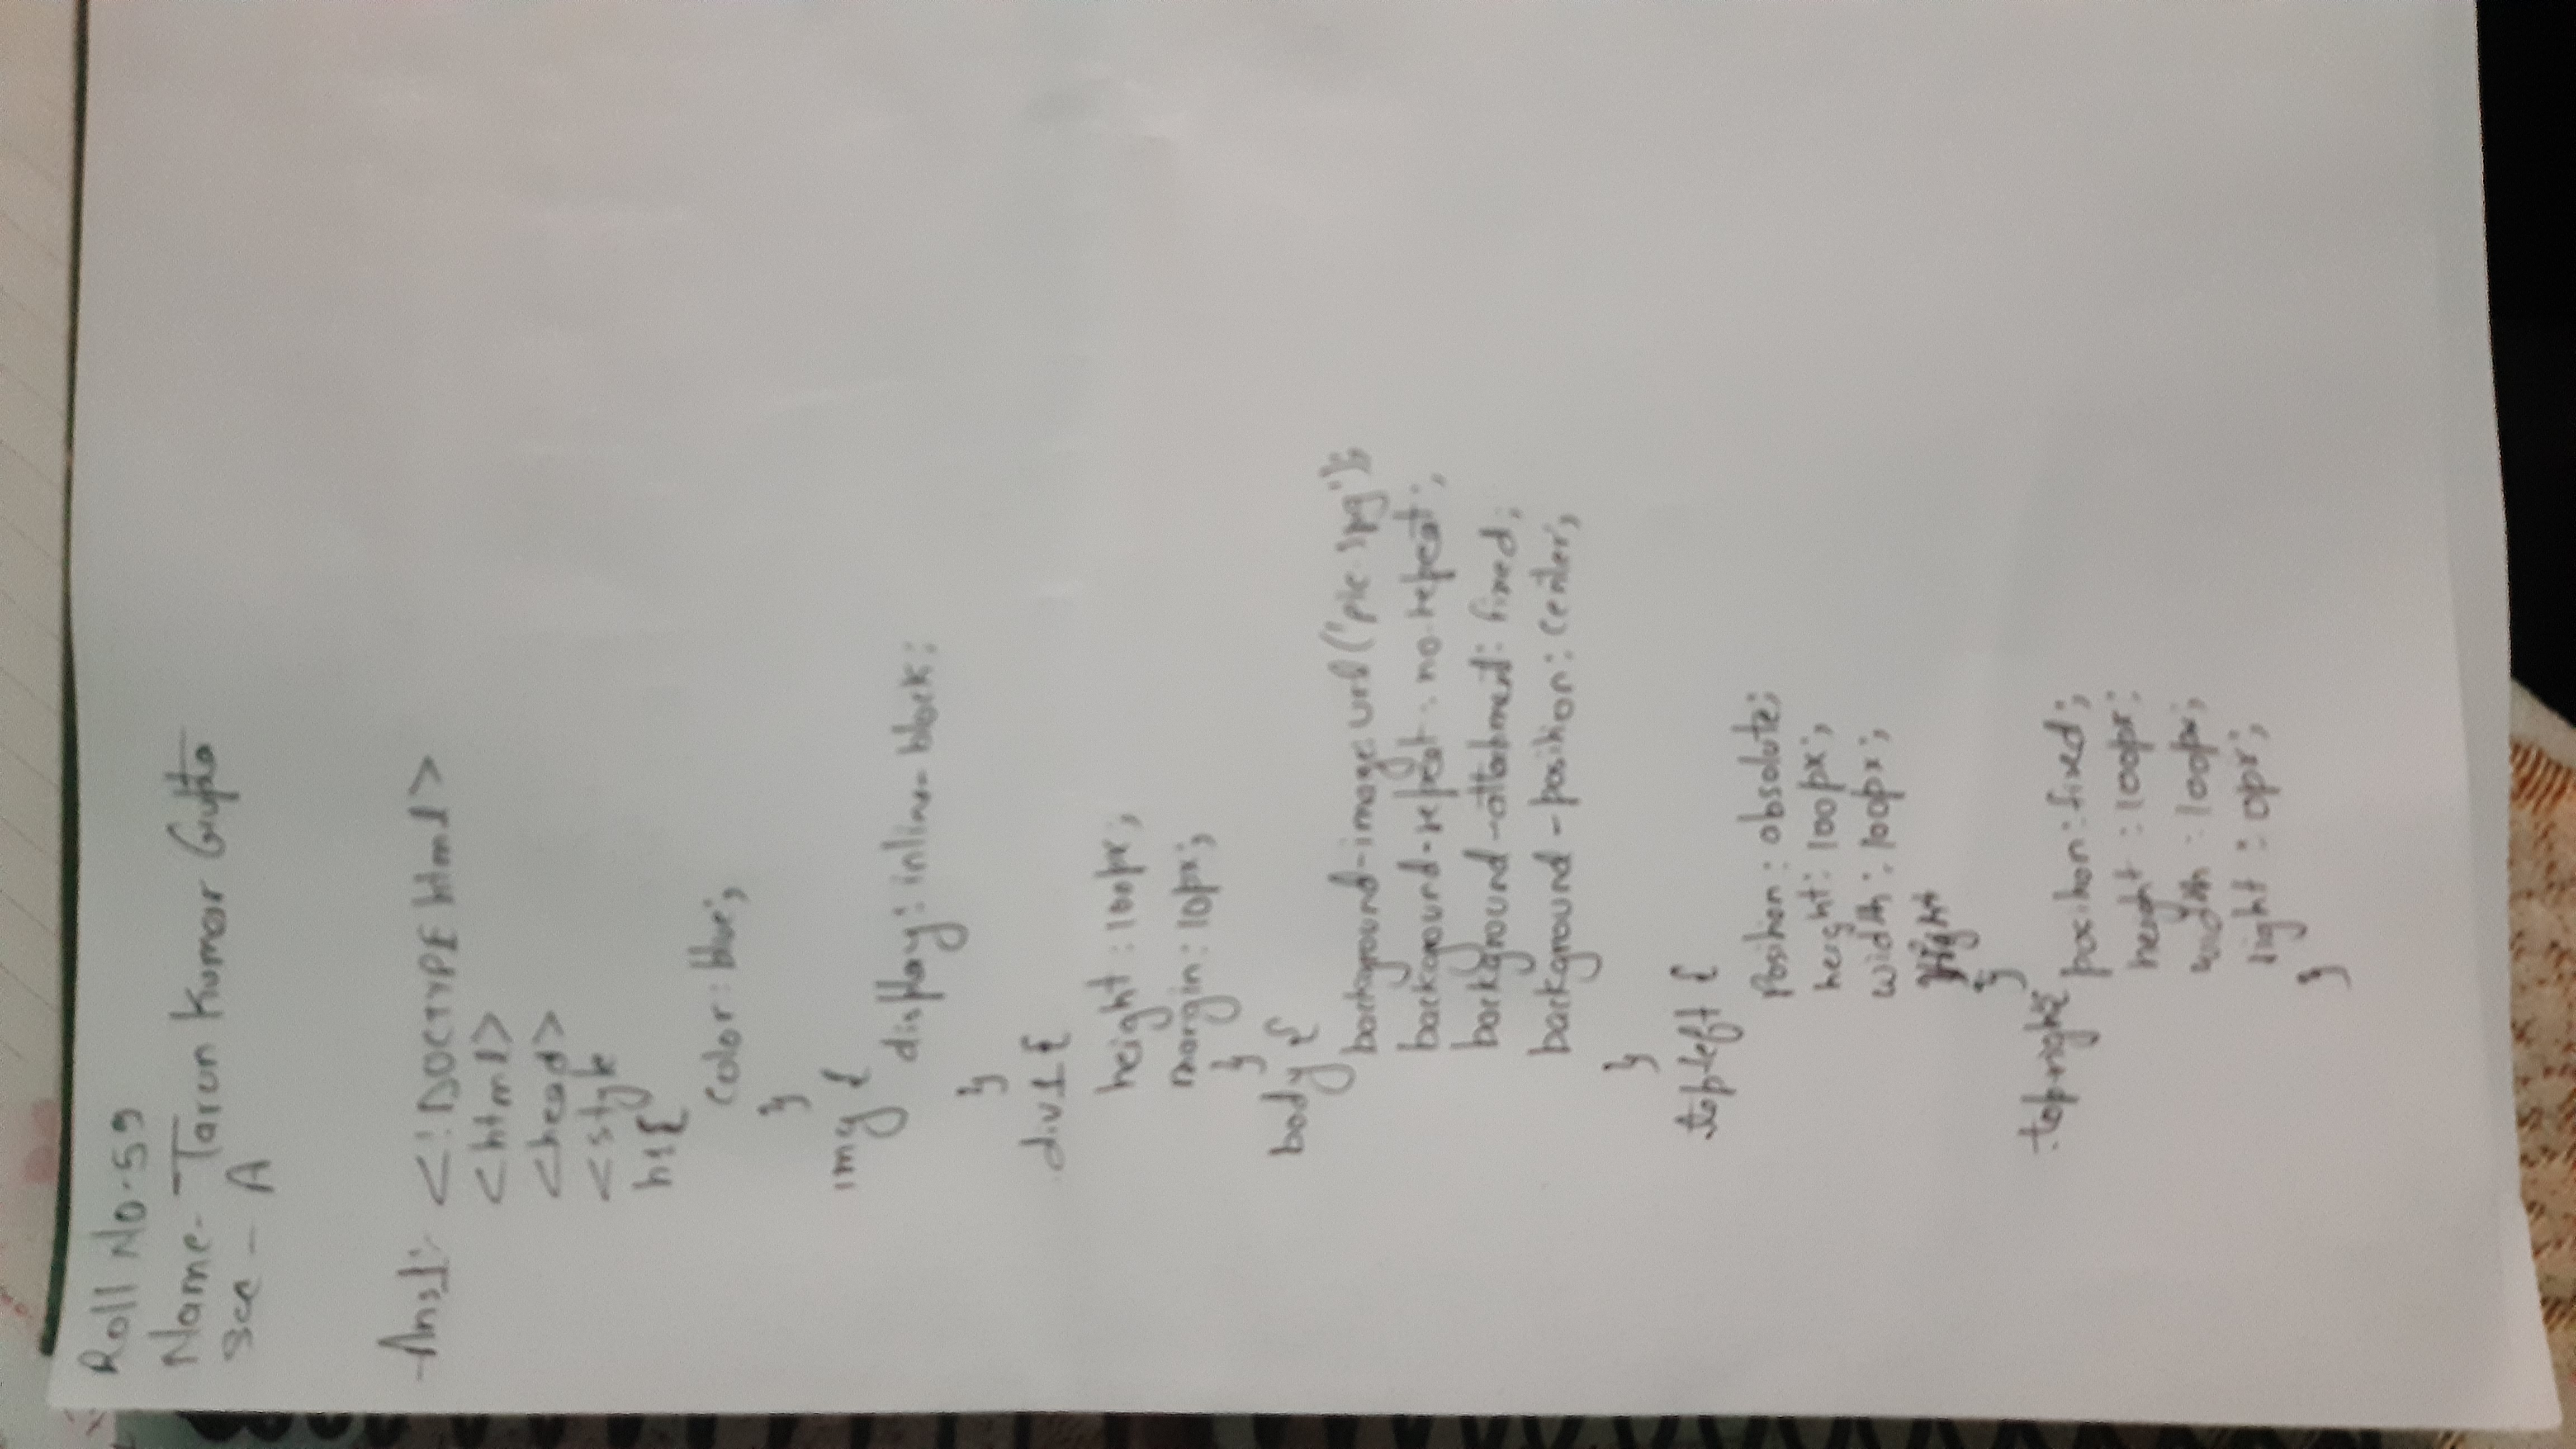 Roll No-59
Name- Tarun Kumar Gupta
Sec - A
Ans1: <!DOCTYPE html>
<html>
<head>
<style
h1{
color: blue;
}
img {
display: inline-block;
}
div1 {
height: 100px;
margin: 10px;
}
body {
background-image: url('pic.jpg');
backgound-repeat: no-repeat;
background-attachment: fixed;
background-position: center;
}
.topleft {
Position: absolute;
height: 100px;
width: 100px;
}
.topright{
position: fixed;
height: 100px;
width: 100px;
right: 0px;
}